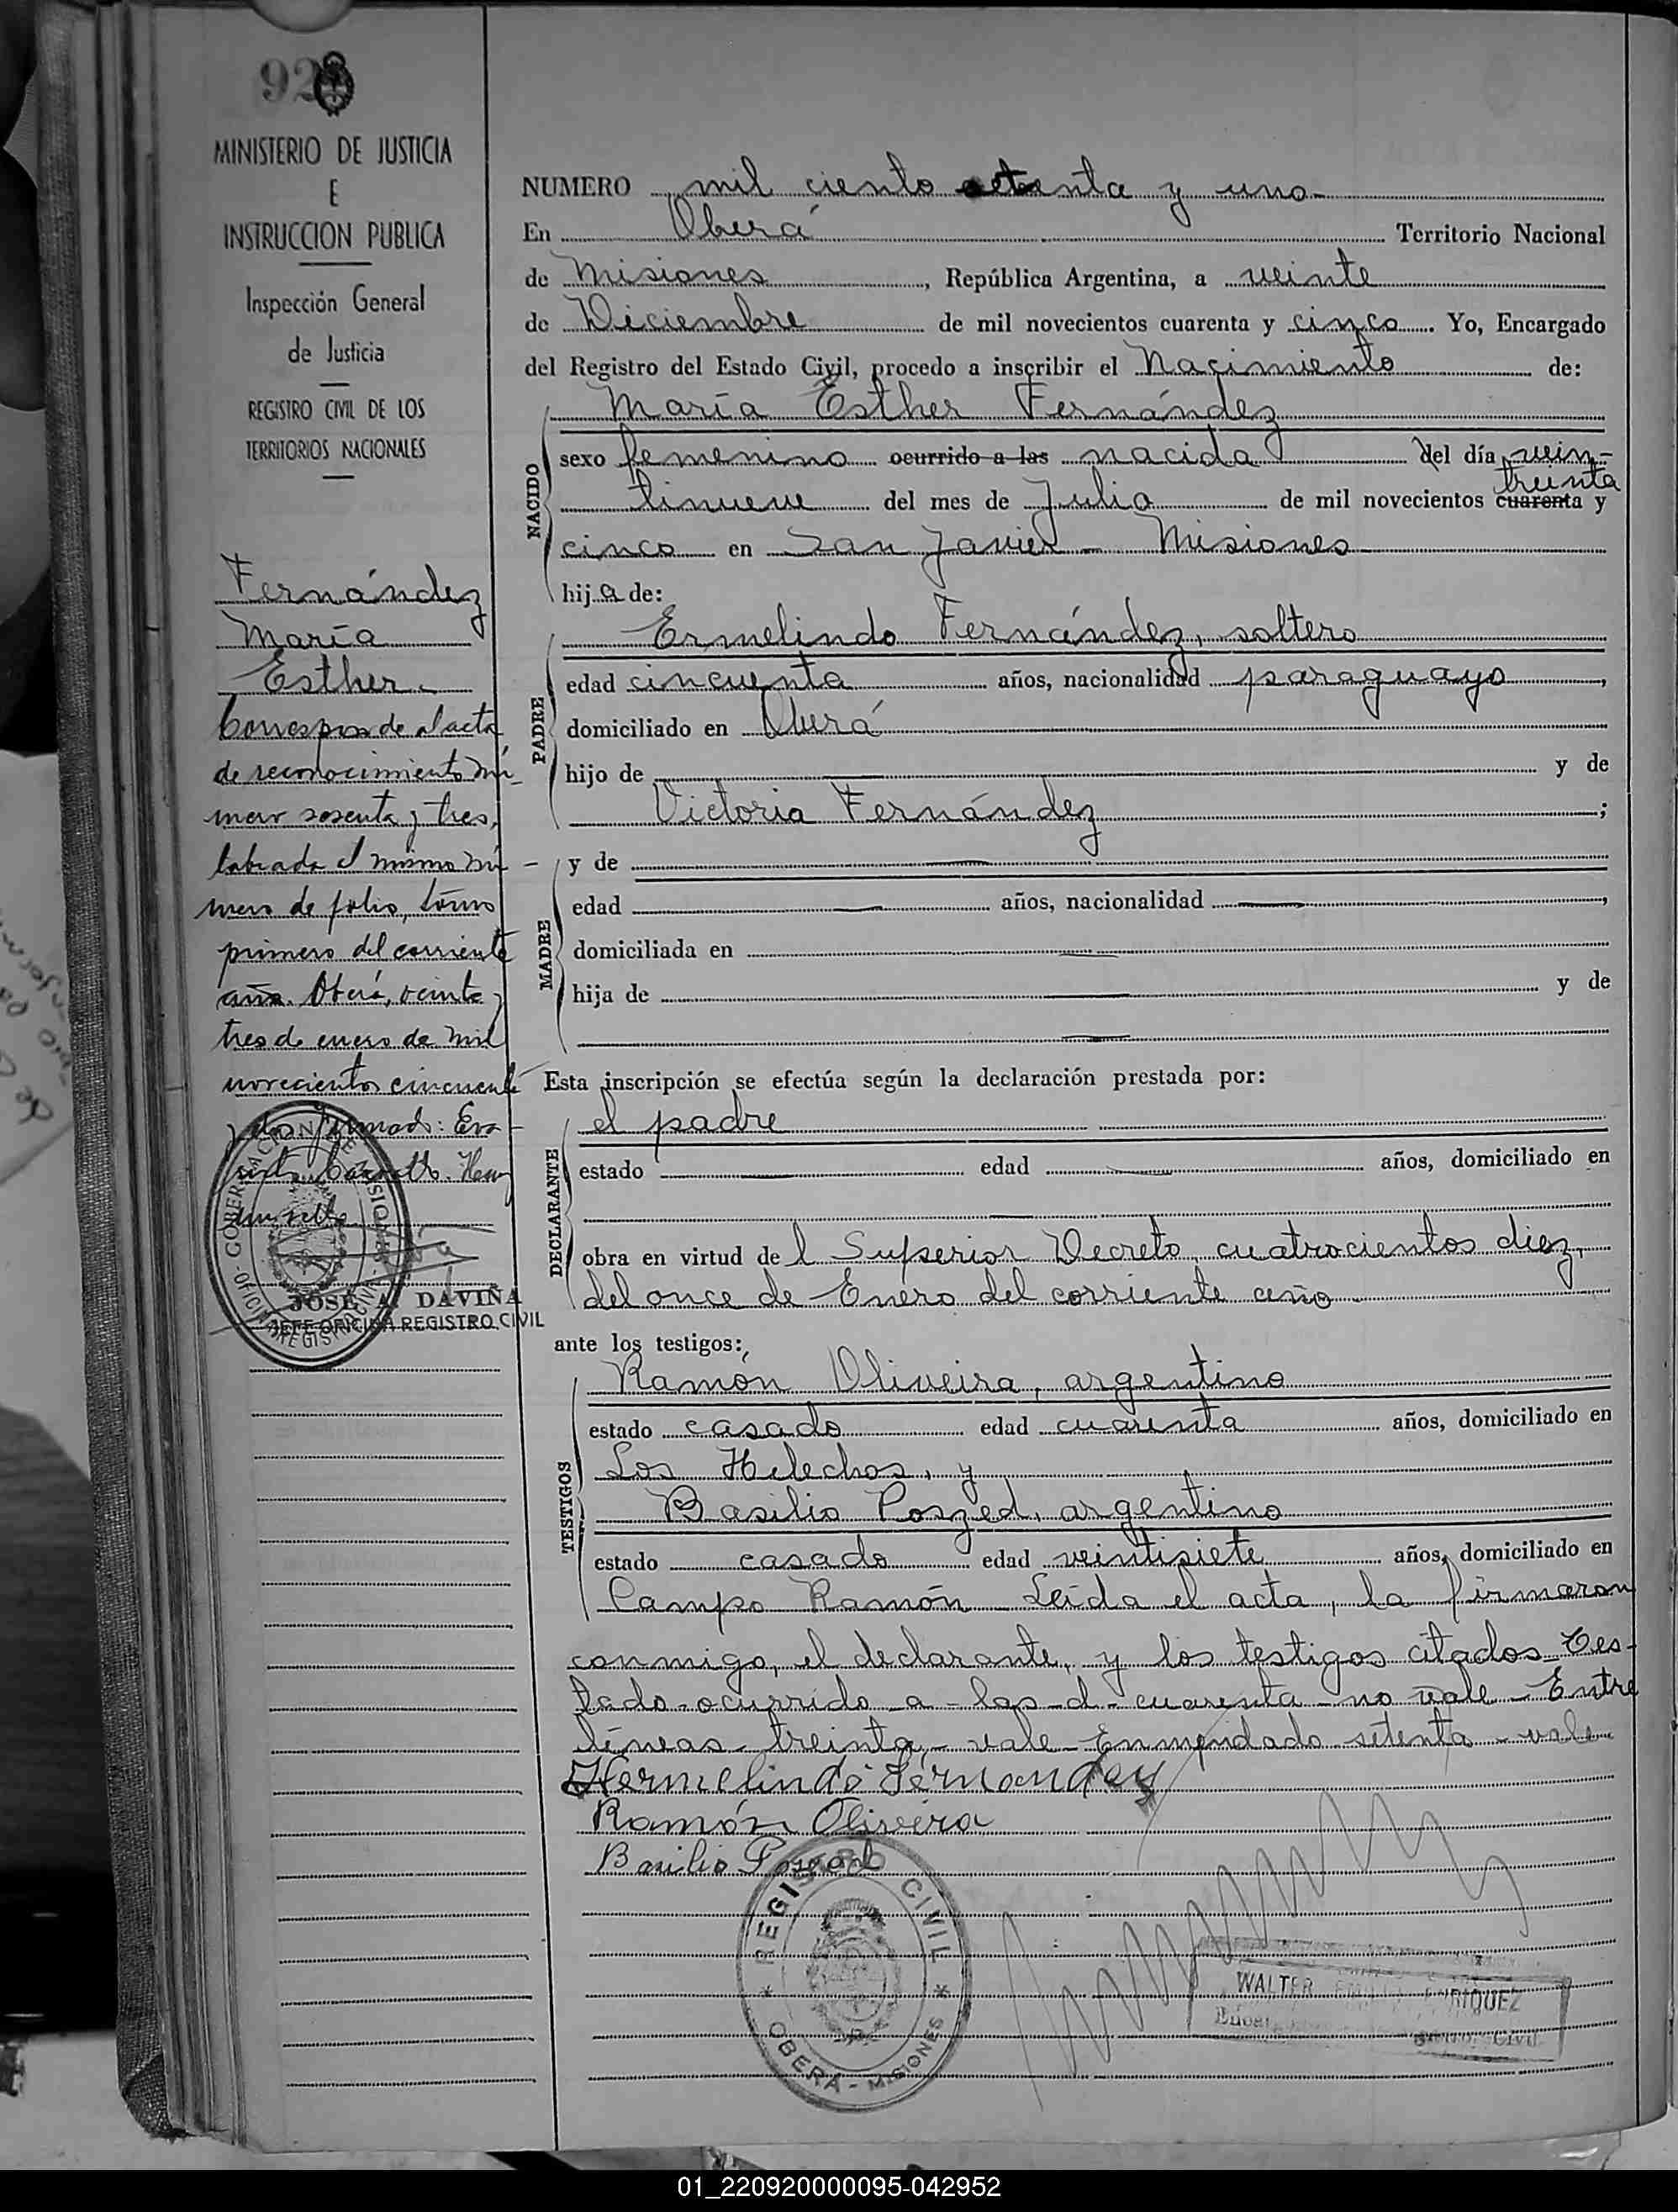 92
MINISTERIO DE JUSTICIA
E
INSTRUCCION PUBLICA
Inspección General
de Justicia
REGISTRO CIVIL DE LOS
TERRITORIOS NACIONALES
Fernández
María
Esther
Corresponde al acta
de reconocimiento nú-
mero sesenta y tres,
labrada el mismo nú-
mero de folio, tomo
primero del corriente
año. Oberá, veinte y
tres de enero de mil
novecientos cincuenta
firmado: Eva-
JOSE A. DAVIÑA
JEFE OFICINA REGISTRO CIVIL
NUMERO mil ciento setenta y uno
En Oberá Territorio Nacional
de Misiones, República Argentina, a veinte
de Diciembre de mil novecientos cuarenta y cinco. Yo, Encargado
del Registro del Estado Civil, procedo a inscribir el Nacimiento de:
NACIDO
María Esther Fernández
sexo femenino ocurrido a las nacida del día vein-
treinta
tinueve del mes de Julio de mil novecientos cuarenta y
cinco en San Javier - Misiones
hija de:
PADRE
Ermelindo Fernández, soltero
edad cincuenta años, nacionalidad paraguayo,
domiciliado en Oberá
hijo de y de
Victoria Fernández;
MADRE
y de
edad años, nacionalidad,
domiciliada en
hija de y de
Esta inscripción se efectúa según la declaración prestada por:
DECLARANTE
el padre
estado edad años, domiciliado en
obra en virtud del Superior Decreto cuatrocientos diez,
del once de Enero del corriente año
ante los testigos:
TESTIGOS
Ramón Oliveira, argentino
estado casado edad cuarenta años, domiciliado en
Los Helechos, y
Basilio Poszed, argentino
estado casado edad veintisiete años, domiciliado en
Campo Ramón Leída el acta, la firmaron
conmigo, el declarante, y los testigos citados Tes-
tado-ocurrido a - las - d - cuarenta - no vale - Entre
líneas - treinta, - vale - Enmendado setenta - vale
Hermelindo Fernandez
Ramón Olivera
Basilio
REGISTRO CIVIL
OBERÁ - MISIONES
WALTER ENRIQUEZ
Civil
01_220920000095-042952